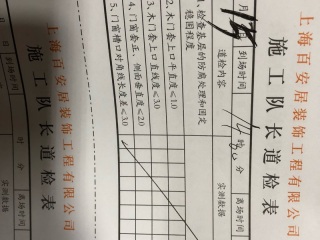 上海百安居装饰工程有限公司
施工队长道检表
月 15 日 到场时间 时 分 离场时间
道检内容 实测数据
1、检查基层的防腐处理和固定
稳固程度
2、木门套上口平直度≤1.0
3、木门套上口直线度≤3.0
4、门窗套正、侧面垂直度≤2.0
5、门窗槽口对角线长度差≤3.0
上海百安居装饰工程有限公司
施工队长道检表
日 到场时间 时 分 离场时间
实测数据